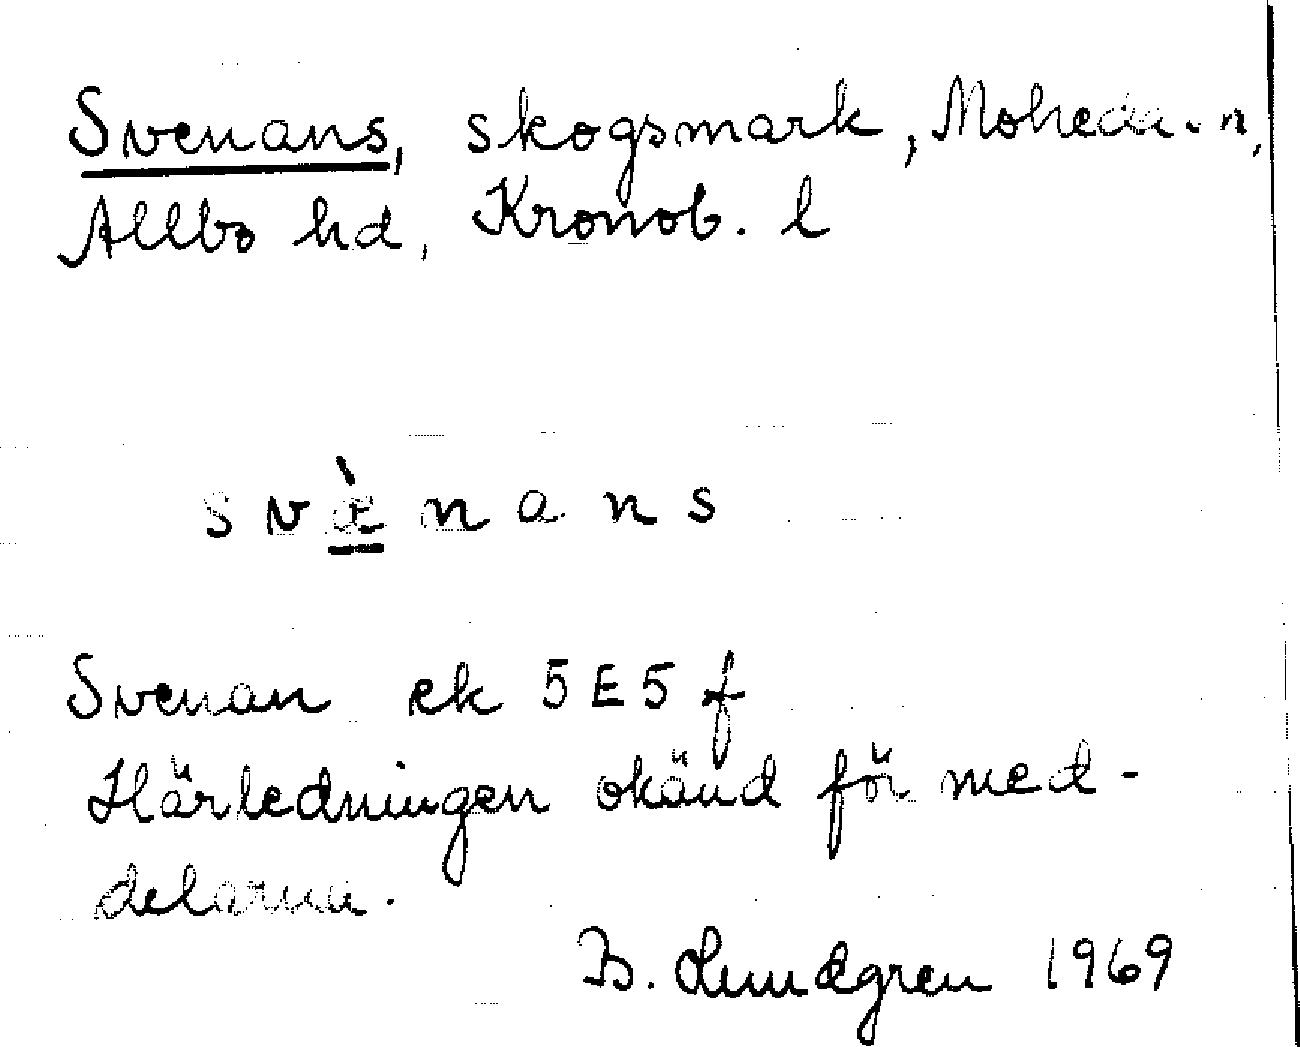 Svenans, skogsmark, Moheda sn,
Allbo hd, Kronob. l
svæ̀nans
Svenan ek 5E5f
Härledningen okänd för med-
delarna.
B. Lundgren 1969